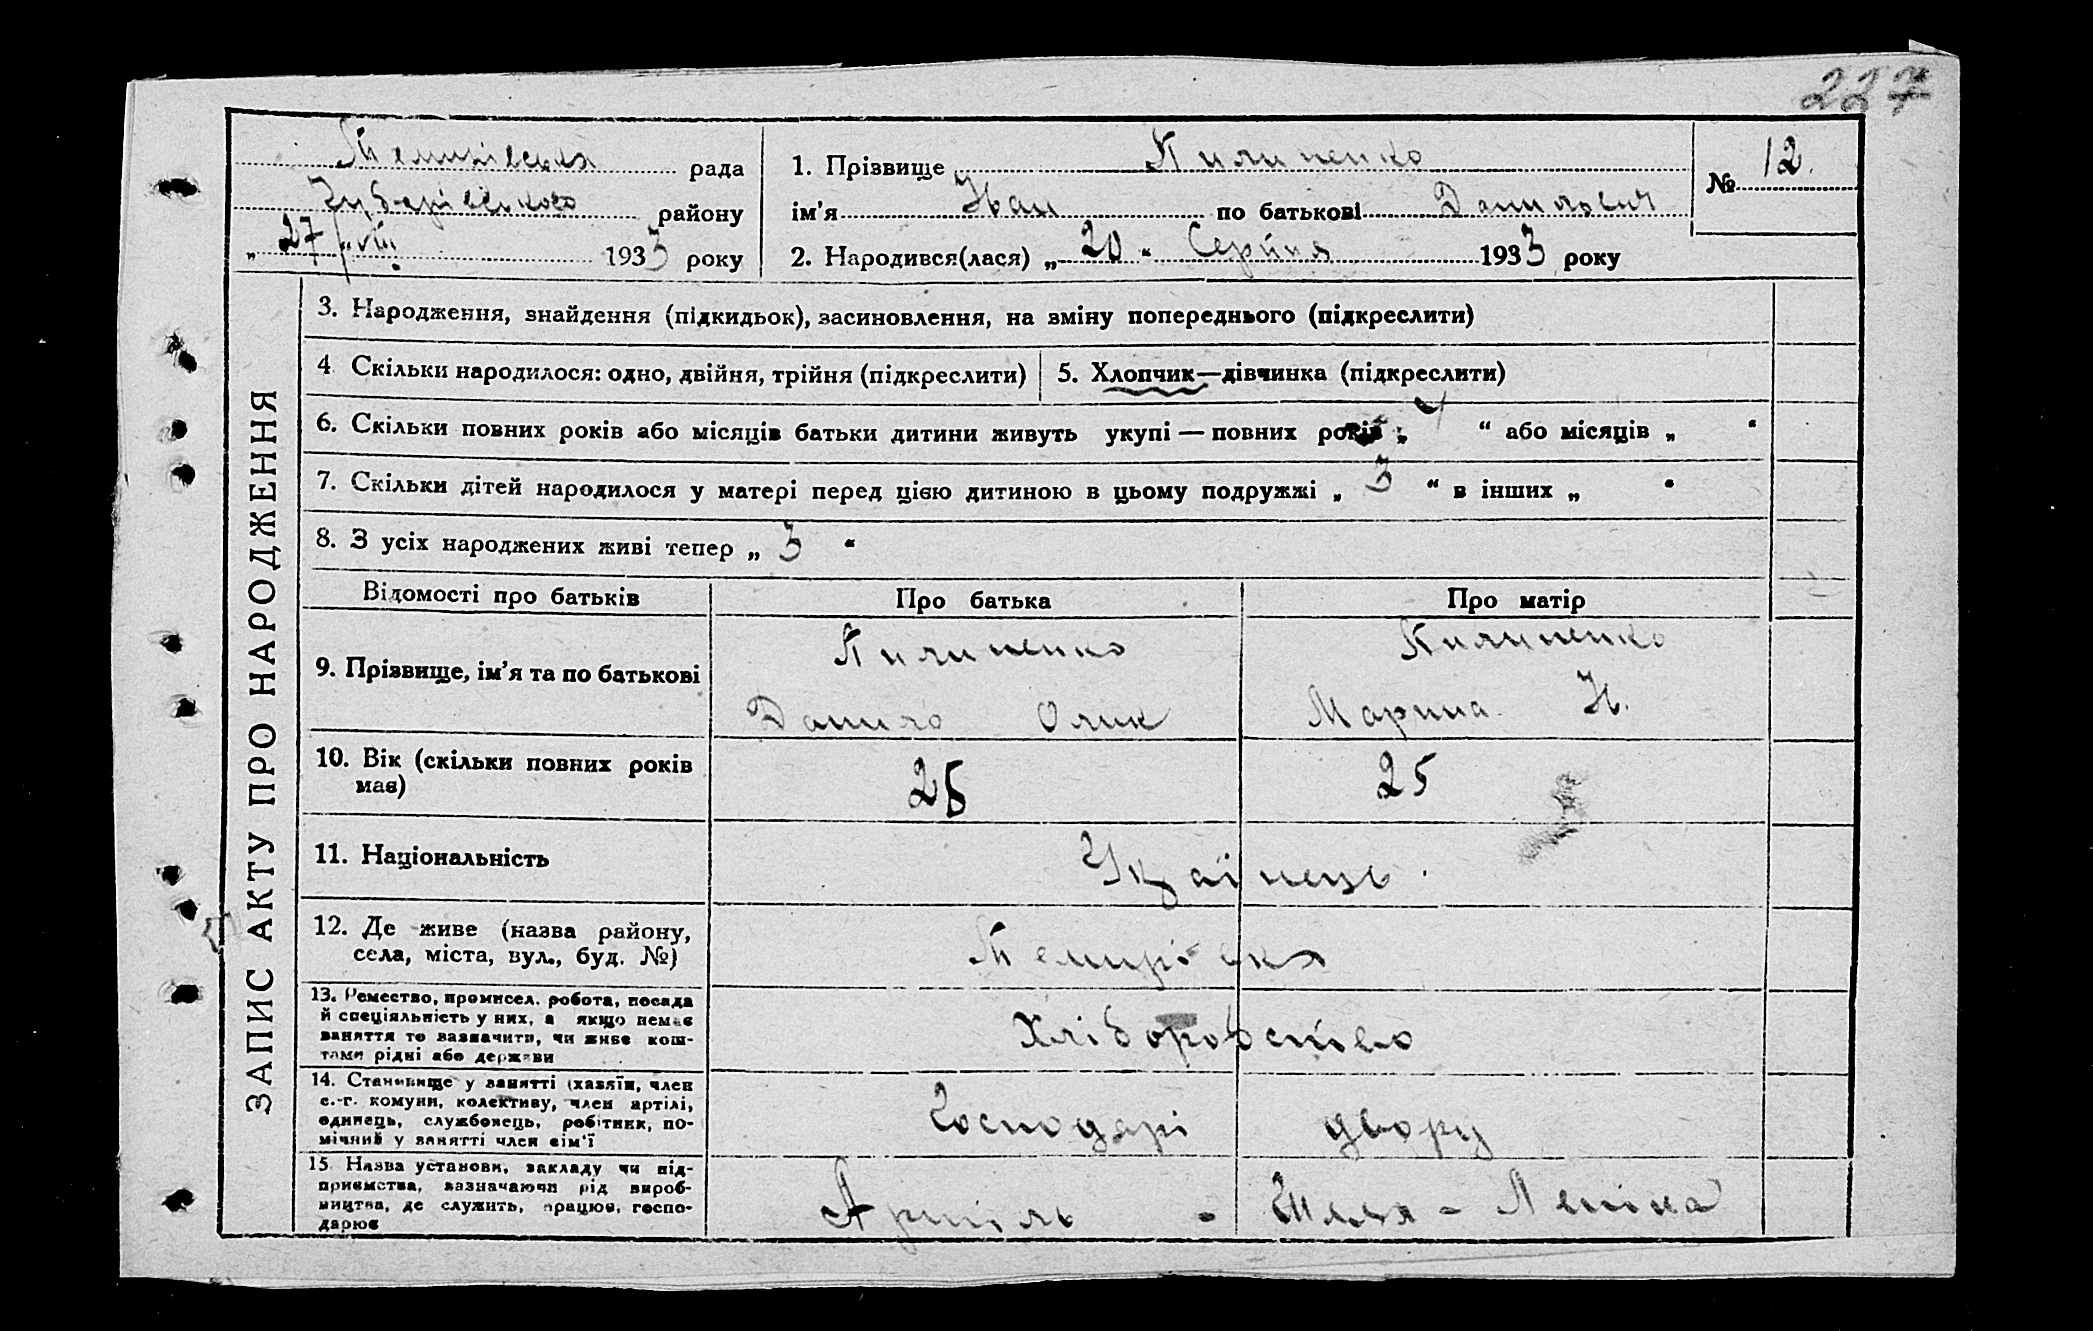 227
Темирівська рада
Чубарівського району
„27/„VIII 1933 року
1. Прізвище Пилипенко
ім'я Іван по батькові Данилович
2. Народився(лася) „20“ Серпня 1933 року
№ 12.
ЗАПИС АКТУ ПРО НАРОДЖЕННЯ
3. Народження, знайдення (підкидьок), засиновлення, на зміну попереднього (підкреслити)
4 Скільки народилося: одно, двійня, трійня (підкреслити)
5. Хлопчик—дівчинка (підкреслити)
6. Скільки повних років або місяців батьки дитини живуть укупі — повних років „ “ або місяців „ “
7. Скільки дітей народилося у матері перед цією дитиною в цьому подружжі „ 3 “ в інших „ “
8. З усіх народжених живі тепер „ 3 “
Відомості про батьків Про батька Про матір
9. Прізвище, ім'я та по батькові
Пилипенко
Данило Олик
Пилипенко
Марина Н.
10. Вік (скільки повних років
має)
25
11. Національність
Українець.
12. Де живе (назва району,
села, міста, вул., буд. №)
Темирівка
13. Ремество, промисел, робота, посада
й спеціяльність у них, а якщо немає
заняття то зазначити, чи живе кош-
тами рідні або держави
Хліборобство
14. Становище у занятті (хазяїн, член
с.-г. комуни, колективу, член артілі,
одинець, службовець, робітник, по-
мічний у занятті член сім'ї
Господарі двору
15. Назва установи, закладу чи під-
приємства, зазначаючи рід вироб-
ництва, де служить, працює, госпо-
дарює
Артіль - Шлях - Леніна